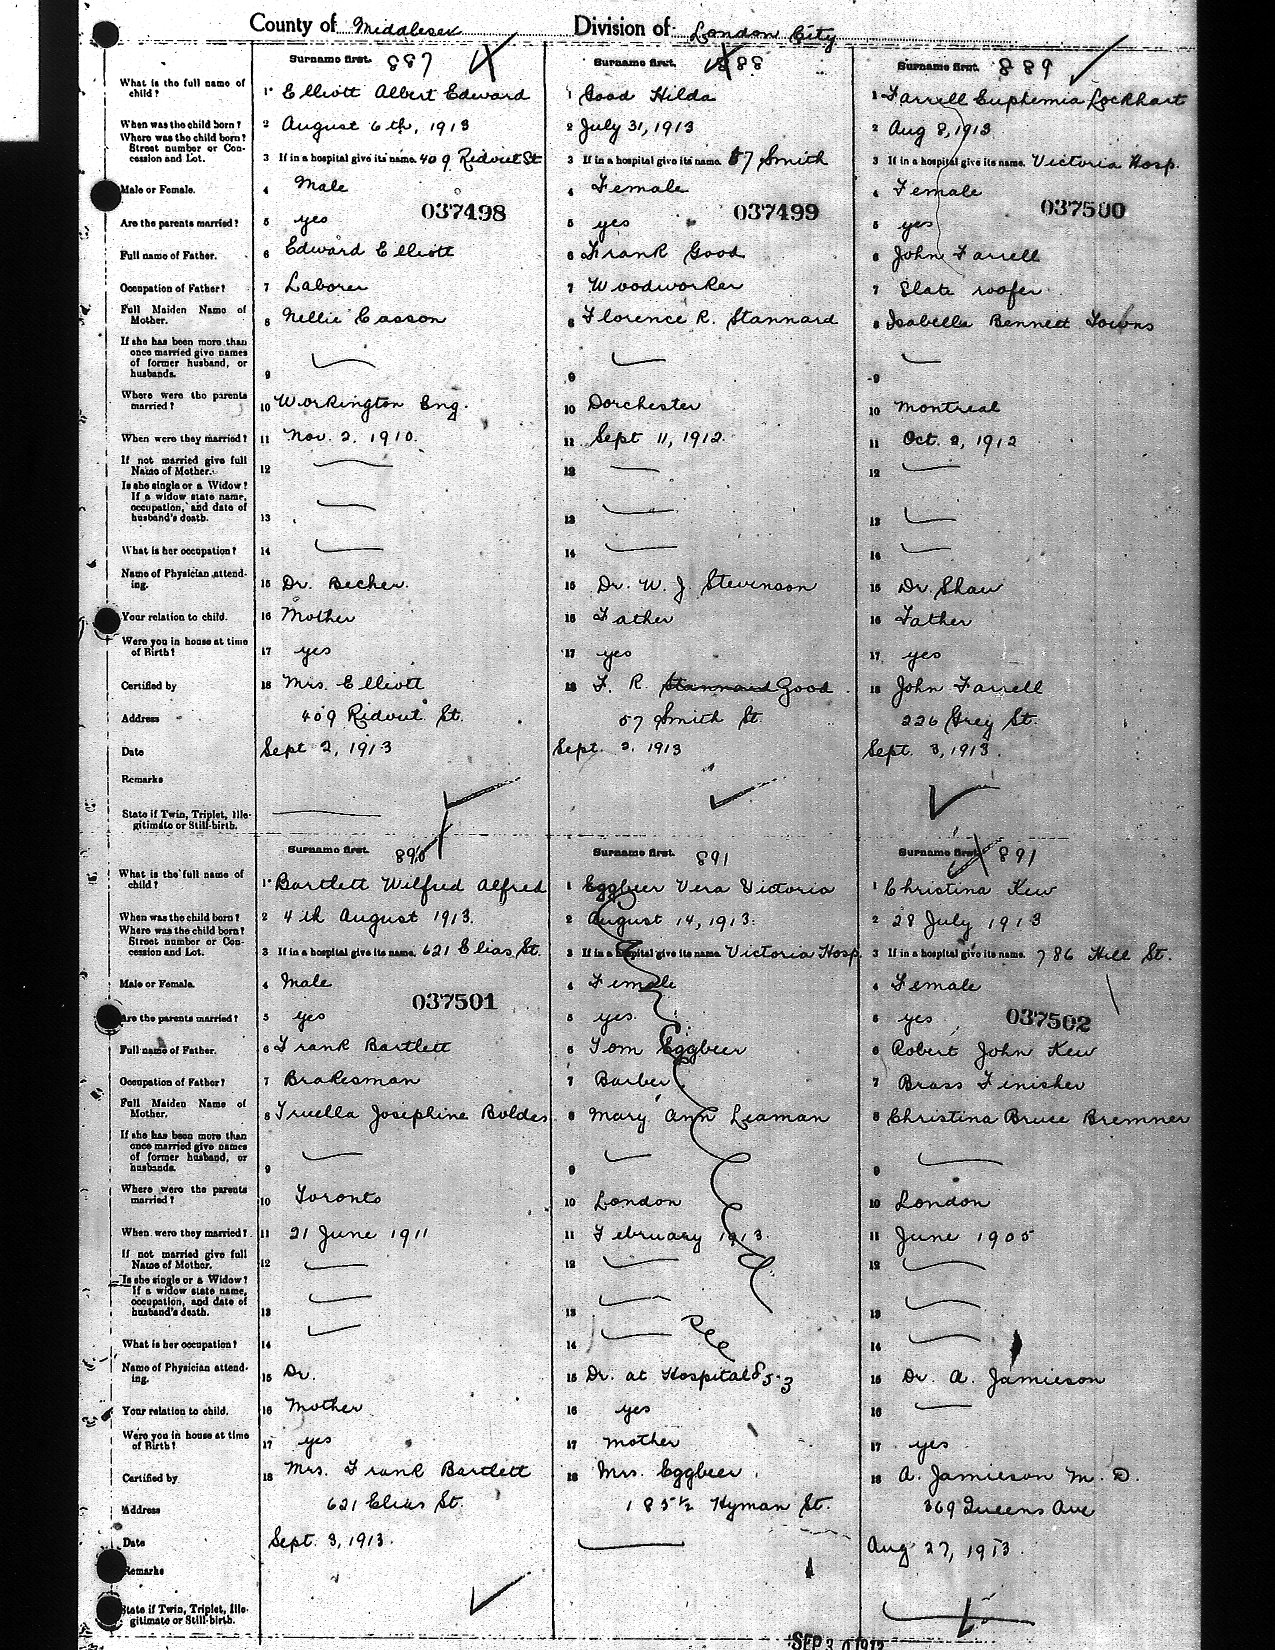 County of Middlesex Division of London City
Surname first. 887 Surname first. 888 Surname first. 889
What is the full name of child? 1 Elliott Albert Edward 1 Good Hilda 1 Farrell Euphemia Lockhart
When was the child born? 2 August 6th, 1913 2 July 31, 1913 2 Aug 8, 1913
Where was the child born? Street number or Concession and Lot. 3 If in a hospital give its name. 409 Ridout St 3 If in a hospital give its name. 57 Smith 3 If in a hospital give its name. Victoria Hosp.
Male or Female. 4 Male 4 Female 4 Female
037498 037499 037500
Are the parents married? 5 yes 5 yes 5 yes
Full name of Father. 6 Edward Elliott 6 Frank Good 6 John Farrell
Occupation of Father? 7 Laborer 7 Woodworker 7 Slate roofer
Full Maiden Name of Mother. 8 Nellie Casson 8 Florence R. Stannard 8 Isabella Bennett Towns
If she has been more than once married give names of former husband, or husbands. 9 9 9
Where were the parents married? 10 Workington Eng. 10 Dorchester 10 Montreal
When were they married? 11 Nov. 2, 1910. 11 Sept 11, 1912. 11 Oct. 2, 1912
If not married give full Name of Mother. 12 12 12
Is she single or a Widow? If a widow state name, occupation, and date of husband's death. 13 13 13
What is her occupation? 14 14 14
Name of Physician attending. 15 Dr. Becher. 15 Dr. W. J. Stevenson 15 Dr Shaw
Your relation to child. 16 Mother 16 Father 16 Father
Were you in house at time of Birth? 17 yes 17 yes 17 yes
Certified by 18 Mrs. Elliott 18 F. R. Stannard Good 18 John Farrell
Address 409 Ridout St. 57 Smith St. 226 Grey St.
Date Sept 2, 1913 Sept. 2, 1913 Sept. 3, 1913.
Remarks
State if Twin, Triplet, Illegitimate or Still-birth.
Surname first. 890 Surname first. 891 Surname first. 891
What is the full name of child? 1 Bartlett Wilfred Alfred 1 Eggbeer Vera Victoria 1 Christina Kew
When was the child born? 2 4th August 1913. 2 August 14, 1913. 2 28 July 1913
Where was the child born? Street number or Concession and Lot. 3 If in a hospital give its name. 621 Elias St. 3 If in a hospital give its name. Victoria Hosp. 3 If in a hospital give its name. 786 Hill St.
Male or Female. 4 Male 4 Female 4 Female
037501 037502
Are the parents married? 5 yes 5 yes. 5 yes
Full name of Father. 6 Frank Bartlett 6 Tom Eggbeer 6 Robert John Kew
Occupation of Father? 7 Brakesman 7 Barber 7 Brass Finisher
Full Maiden Name of Mother. 8 Truella Josephine Boldes 8 Mary Ann Leaman 8 Christina Bruce Bremner
If she has been more than once married give names of former husband, or husbands. 9 9 9
Where were the parents married? 10 Toronto 10 London 10 London
When were they married? 11 21 June 1911 11 February 1913. 11 June 1905
If not married give full Name of Mother. 12 12 12
Is she single or a Widow? If a widow state name, occupation, and date of husband's death. 13 13 13
What is her occupation? 14 14 see 14
Name of Physician attending. 15 Dr. 15 Dr. at Hospital 853 15 Dr. A. Jamieson
Your relation to child. 16 Mother 16 yes 16
Were you in house at time of Birth? 17 yes 17 mother 17 yes
Certified by 18 Mrs. Frank Bartlett 18 Mrs. Eggbeer 18 A. Jamieson M. D.
Address 621 Elias St. 185½ Hyman St. 369 Queens Ave
Date Sept. 3, 1913. Aug 27, 1913.
Remarks
State if Twin, Triplet, Illegitimate or Still-birth.
SEP 30 1913